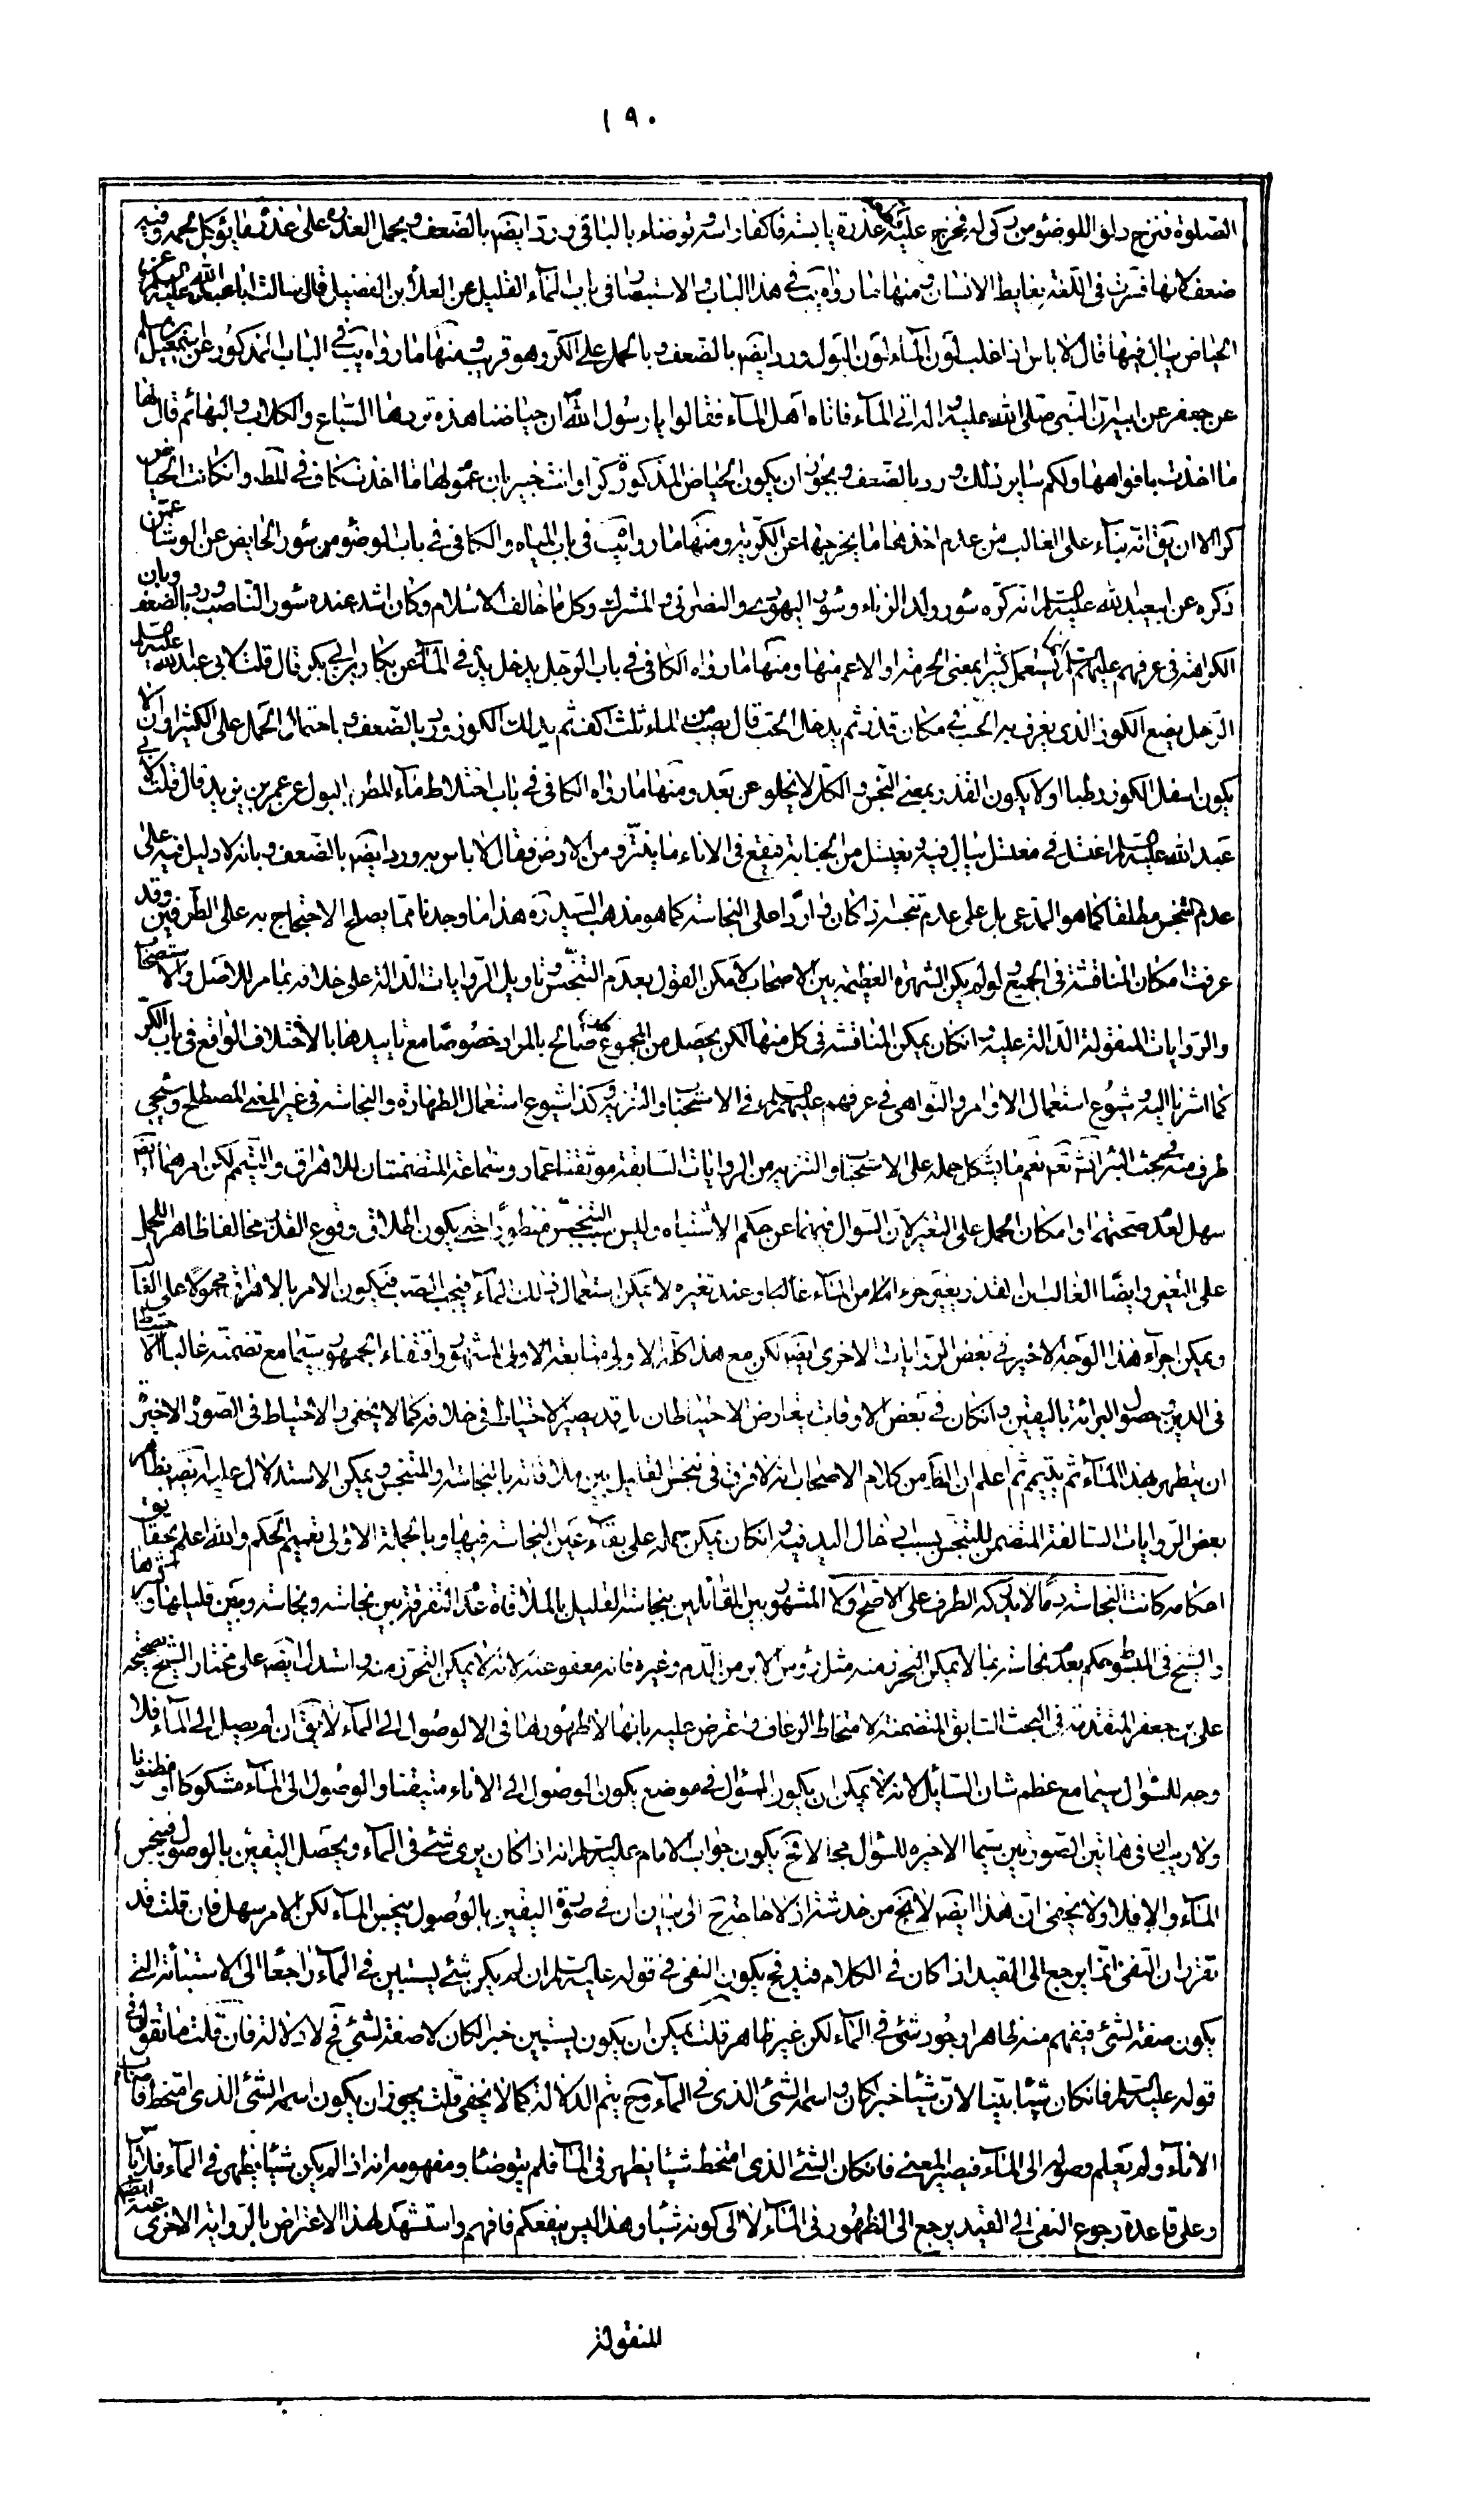 ١٩٠
الصلوة فنزح دلو اللوضوء من ركى له فخرج عليه عذرة يابسة فاكفاء راسه وتوضاء بالباقى ورد ايضا بالضعف ويحمل العذرة على عذرة ما يؤكل لحمه وفيه
ضعف لانها فسرت فى اللغة بغايط الانسان ومنها ما رواه يب فى هذا الباب والاستبصار فى باب الماء القليل عن العلاء بن الفضيل قال سالت ابا عبد الله عليه السلم عن
الحياض يبال فيها قال لا باس اذا غلب لون الماء لون البول ورد ايضا بالضعف وبالحمل على الكر وهو قريب ومنها ما رواه يب فى الباب المذكور عن
عن جعفر عن ابيه ان النبى صلى الله عليه واله اتى الماء فاتاه اهل الماء فقالوا يا رسول الله ان حياضنا هذه تردها السباع والكلاب والبهائم قال لها
ما اخذت بافواهها ولكم ساير ذلك ورد بالضعف وبجواز ان يكون الحياض المذكورة كرا وانت خبير بان عموم لها ما اخذت كاف فى المط وان كانت الحياض
كرا الا ان يق انه بناء على الغالب من عدم اخذها ما يخرجها عن الكرية ومنها ما رواه يب فى باب المياه والكافى فى باب الوضوء من سؤر الحايض عن الوشا عمن
ذكره عن ابيعبد الله عليه السلم انه كره سؤر ولد الزناء وسؤر اليهودى والنصرانى والمشرك وكل ما خالف الاسلام وكان اشد عنده سؤر الناصب ورد بالضعف وبان
الكراهة فى عرفهم عليهم السلم يستعمل كثيرا بمعنى الحرمة او الاعم منها ومنها ما رواه الكافى فى باب الرجل يدخل يده فى الماء عن بكار بن ابى بكر قال قلت لابى عبد الله عليه السلم
الرجل يضع الكوز الذى يغرف به الحب فى مكان قذر ثم يدخل الحب قال يصب من الماء ثلث اكف ثم يدلك الكوز ورد بالضعف باحتمال الحمل على الكثير او ان لا
يكون اسفل الكوز رطبا او لا يكون القذر بمعنى النجس والكل لا يخلو عن بعد ومنها ما رواه الكافى فى باب اختلاط ماء المطر بالبول عن عمر بن يزيد قال قلت لابى
عبد الله عليه السلم اغتسل فى مغتسل يبال فيه ويغتسل من الجنابة فيقع فى الاناء ما ينزو من الارض فقال لا باس به ورد ايضا بالضعف وبانه لا دليل فيه على
عدم التنجس مطلقا كما هو المدعى بل على عدم تنجسه اذا كان واردا على النجاسة كما هو مذهب السيد ره هذا ما وجدنا مما يصلح الاحتجاج به على الطرفين وقد
عرفت امكان المناقشة فى الجميع ولو لم يكن الشهرة العظيمة بين الاصحاب لامكن القول بعدم التنجس وتاويل الروايات الدالة على خلافه بما مر للاصل والاستصحاب
والروايات المنقولة الدالة عليه وان كان يمكن المناقشة فى كل منها لكن يحصل من المجموع صالح بالمراد خصوصا مع تاييدها بالاختلاف الواقع فى باب الكر
كما اشرنا اليه وشيوع استعمال الاوامر والنواهى فى عرفهم عليهم السلم فى الاستحباب والتنزيه وكذا شيوع استعمال الطهارة والنجاسة فى غير المعنى المصطلح وسيجئ
طرف منه فى مبحث البئر انشاء الله تعه نعم ما يشكل حمله على الاستحباب والتنزيه من الروايات السابقة موثقتا عمار وسماعة المتضمنتان للاهراق والتيمم لكن امرهما ايضا
سهل لعدم صحتهما وامكان الحمل على التغير لان السؤال فيهما عن حكم الاشتباه وليس سبب التنجيس منظورا حتى يكون اطلاق وقوع القذر مخالفا ظاهرا للحمل
على التغير وايضا الغالب ان القذر يغير جزء اما من الماء غالبا وعند تغيره لا يمكن استعمال ذلك الماء فيجب الصب فيكون الامر بالاهراق محمولا على الغالب
ويمكن اجراء هذا الوجه الاخير فى بعض الروايات الاخرى ايضا لكن مع هذا كله الاولى متابعة المشهور واقتفاء الجمهور سيما مع تضمنه غالبا الاحتياط
فى الدين وحصول البرائة باليقين وان كان فى بعض الاوقات يتعارض الاحتياطان بل قد يصير الاحتياط فى خلافه كما لا يخفى والاحتياط فى الصورة الاخيرة
ان يتطهر بهذا الماء ثم يتيمم ثم اعلم ان الظاهر من كلام الاصحاب انه لا فرق فى تنجس القليل بين ملاقاته بالنجاسة والمتنجس ويمكن الاستدلال عليه ايضا بظاهر
بعض الروايات السالفة المتضمن للتنجس بسبب ادخال اليد فيه وان كان يمكن حمله على بقاء عين النجاسة فيها وبالجملة الاولى تعميم الحكم والله اعلم بحقايق
احكامه كانت النجاسة دما لا يدركه الطرف على الاصح ولا المشهور بين القائلين بنجاسة القليل بالملاقاة عدم التفرقة بين نجاسة ونجاسة وبين قليلها وكثيرها
والشيخ فى المبسوط حكم بعدم نجاسته بما لا يمكن التحرز منه مثل رؤس الابر من الدم وغيره فانه معفو عنه لانه لا يمكن التحرز منه واستدل ايضا على مختار الشيخ بصحيحة
على بن جعفر المتقدمة فى البحث السابق المتضمنة لامتخاط الرعاف واعترض عليه بانها لا ظهور لها فى الا لوصول الى الماء لا يق ان لم يصل الى الماء فلا
وجه للسؤال سيما مع عظم شان السائل لانه لا يمكن ان يكون السؤال فى موضع يكون الوصول الى الاناء متيقنا والوصول الى الماء مشكوكا او مظنونا
ولا ريب ان فى هاتين الصورتين سيما الاخيرة للسؤال مجالا فح يكون جواب الامام عليه السلم انه اذا كان يرى شئ فى الماء ويحصل اليقين بالوصول فينجس
الماء والا فلا ولا يخفى ان هذا ايضا لا يخ من خدشة اذ لا حاجة ح الى بيان ان فى صورة اليقين بالوصول ينجس الماء لكن الامر سهل فان قلت قد
تقرر ان النفى انما يرجع الى القيد اذا كان فى الكلام قيد فح يكون النفى فى قوله عليه السلم ان لم يكن شئ يستبين فى الماء راجعا الى الاستبانة التى
يكون صفة لشئ فيفهم منه ظاهرا وجود شئ فى الماء لكن غير ظاهر قلت يمكن ان يكون يستبين خبر الكان لا صفة لشئ فح لا دلالة فان قلت ما تقول فى
قوله عليه السلم فان كان شيئا بينا لان شيئا خبر كان واسمه الشئ الذى فى الماء وح يتم الدلالة كما لا يخفى قلت يجوز ان يكون اسمه الشئ الذى امتخط فاصاب
الاناء ولم يعلم وصوله الى الماء فيصير المعنى فان كان الشئ الذى امتخط شيئا يظهر فى الماء فلم يتوضا ومفهومه انه اذا لم يكن شيئا يظهر فى الماء فلا باس
وعلى قاعدة رجوع النفى الى القيد يرجع الى الظهور فى الماء لا الى كونه شيئا وهذا ليس ينفعكم فافهم واستشهد لهذا الاعتراض بالرواية الاخرى عنه ايضا
المنقولة